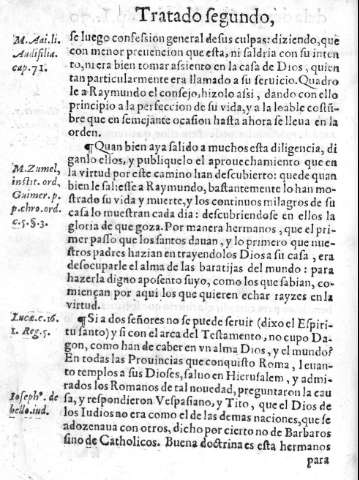 Tratado segundo,
M. Aui. li.
Audifilia
cap. 71.
se luego confession general de sus culpas: diziendo, que
con menor preuencion que esta, ni saldria con su inten
to, ni era bien tomar assiento en la casa de Dios, quien
tan particularmente era llamado a su seruicio. Quadro
le a Raymundo el consejo, hizolo assi, dando con ello
principio a la perfeccion de su vida, y a la loable costũ-
bre que en semejante ocasion hasta ahora se lleua en la
orden.
¶Quan bien aya salido a muchos esta diligencia, di
ganlo ellos, y publiquelo el aprouechamiento que en
la virtud por este camino han descubierto: quede quan
bien le saliesse a Raymundo, bastantemente lo han mo
strado su vida y muerte, y los continuos milagros de su
casa lo muestran cada dia: descubriendose en ellos la
gloria de que goza. Por manera hermanos, que el pri-
mer passo que los santos dauan, y lo primero que nue-
stros padres hazian en trayendolos Dios a su casa, era
desocuparle el alma de las baratijas del mundo: para
hazerla digno aposento suyo, como los que sabian, co-
miençan por aqui los que quieren echar rayzes en la
virtud.
M. Zumel,
instit. ord,
Guimer. p.
p. chro. ord.
c. 5. §. 3.
¶Si a dos señores no se puede seruir (dixo el Espiri
tu santo) y si con el arca del Testamento, no cupo Da-
gon, como han de caber en vn alma Dios, y el mundo?
En todas las Prouincias que conquisto Roma, leuan-
to templos a sus Dioses, saluo en Hierusalem, y admi-
rados los Romanos de tal nouedad, preguntaron la cau
sa, y respondieron Vespasiano, y Tito, que el Dios de
los Iudios no era como el de las demas naciones, que se
adozenaua con otros, dicho por cierto no de Barbaros
sino de Catholicos. Buena doctrina es esta hermanos
Lucæ. c. 16.
1. Reg. 5.
Ioseph°. de
bello. iud.
para